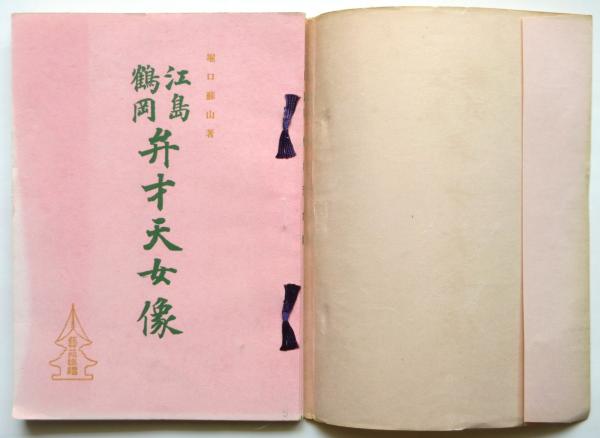 堀口蘇山著
江島
鶴岡
弁才天女像